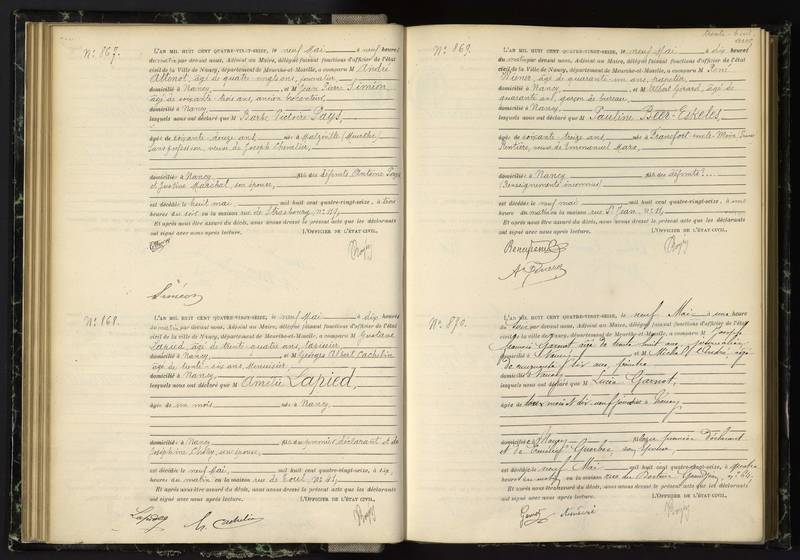 N° 867.
L'AN MIL HUIT CENT QUATRE-VINGT-SEIZE, le neuf Mai à neuf heures
du matin par devant nous, Adjoint au Maire, délégué faisant fonctions d'officier de l'état
civil de la Ville de Nancy, département de Meurthe-et-Moselle, a comparu M André
âgé de quatre vingts ans, journalier,
domicilié à Nancy, et M Jean Pierre Siméon,
âgé de soixante trois ans, ancien brocanteur,
domicilié à Nancy,
lesquels nous ont déclaré que M Barbe Victoire Pays,
âgée de soixante-douze ans, née à (Meurthe)
Sans profession, veuve de Joseph Chevalier,
domiciliée à Nancy, fille des défunts Antoine Pays
et Justine Maréchal, son épouse,
est décédée le huit mai, mil huit cent quatre-vingt-seize, à trois
heures du soir, en la maison rue de Strasbourg, n° 119,
Et après nous être assuré du décès, nous avons dressé le présent acte que les déclarants
ont signé avec nous après lecture. L'OFFICIER DE L'ÉTAT CIVIL,
Siméon
N° 868.
L'AN MIL HUIT CENT QUATRE-VINGT-SEIZE, le neuf Mai à dix heures
du matin par devant nous, Adjoint au Maire, délégué faisant fonctions d'officier de l'état
civil de la ville de Nancy, département de Meurthe-et-Moselle, a comparu M Gustave
Lapied, âgé de trente quatre ans,
domicilié à Nancy, et M Georges Albert Cachelin
âgé de trente-six ans, Menuisier,
domicilié à Nancy,
lesquels nous ont déclaré que M Amélie Lapied,
âgée de un mois, née à Nancy,
domiciliée à Nancy, fille du premier déclarant et de
Joséphine, son épouse,
est décédée le neuf Mai, mil huit cent quatre-vingt-seize, à six
heures du matin en la maison rue de Toul n° 41,
Et après nous être assuré du décès, nous avons dressé le présent acte que les déclarants
ont signé avec nous après lecture. L'OFFICIER DE L'ÉTAT CIVIL,
Lapied
Cachelin
N° 869.
L'AN MIL HUIT CENT QUATRE-VINGT-SEIZE, le neuf Mai à dix heures
du matin par devant nous, Adjoint au Maire, délégué faisant fonctions d'officier de l'état
civil de la Ville de Nancy, département de Meurthe-et-Moselle, a comparu M René
Wiener, âgé de quarante un ans, papetier,
domicilié à Nancy, et M Albert Girard, âgé de
quarante ans, garçon de bureau,
domicilié à Nancy,
lesquels nous ont déclaré que M Pauline Beer-Eskeles,
âgée de soixante-treize ans, née à Francfort-sur-le-Mein,
Rentière, veuve de Emmanuel Marx,
domiciliée à Nancy, fille des défunts ? ...
(Renseignements inconnus)
est décédée le neuf mai mil huit cent quatre-vingt-seize, à
heure du matin en la maison rue St Jean, n° 11,
Et après nous être assuré du décès, nous avons dressé le présent acte que les déclarants
ont signé avec nous après lecture. L'OFFICIER DE L'ÉTAT CIVIL,
N° 870.
L'AN MIL HUIT CENT QUATRE-VINGT-SEIZE, le neuf Mai à onze heures
du par devant nous, Adjoint au Maire, délégué faisant fonctions d'officier de l'état
civil de la ville de Nancy, département de Meurthe-et-Moselle, a comparu M Joseph
Garnot, âgé de trente huit ans, journalier,
domicilié à Nancy, et M Michel André, âgé
de ans,
domicilié à Nancy,
lesquels nous ont déclaré que M Lucie Garnot,
âgée de deux mois et dix-neuf jours née à Nancy,
domiciliée à Nancy, fille du premier déclarant
et de son épouse,
est décédée le neuf Mai mil huit cent quatre-vingt-seize, à quatre
heures du matin, en la maison rue du n° 64,
Et après nous être assuré du décès, nous avons dressé le présent acte que les déclarants
ont signé avec nous après lecture. L'OFFICIER DE L'ÉTAT CIVIL,